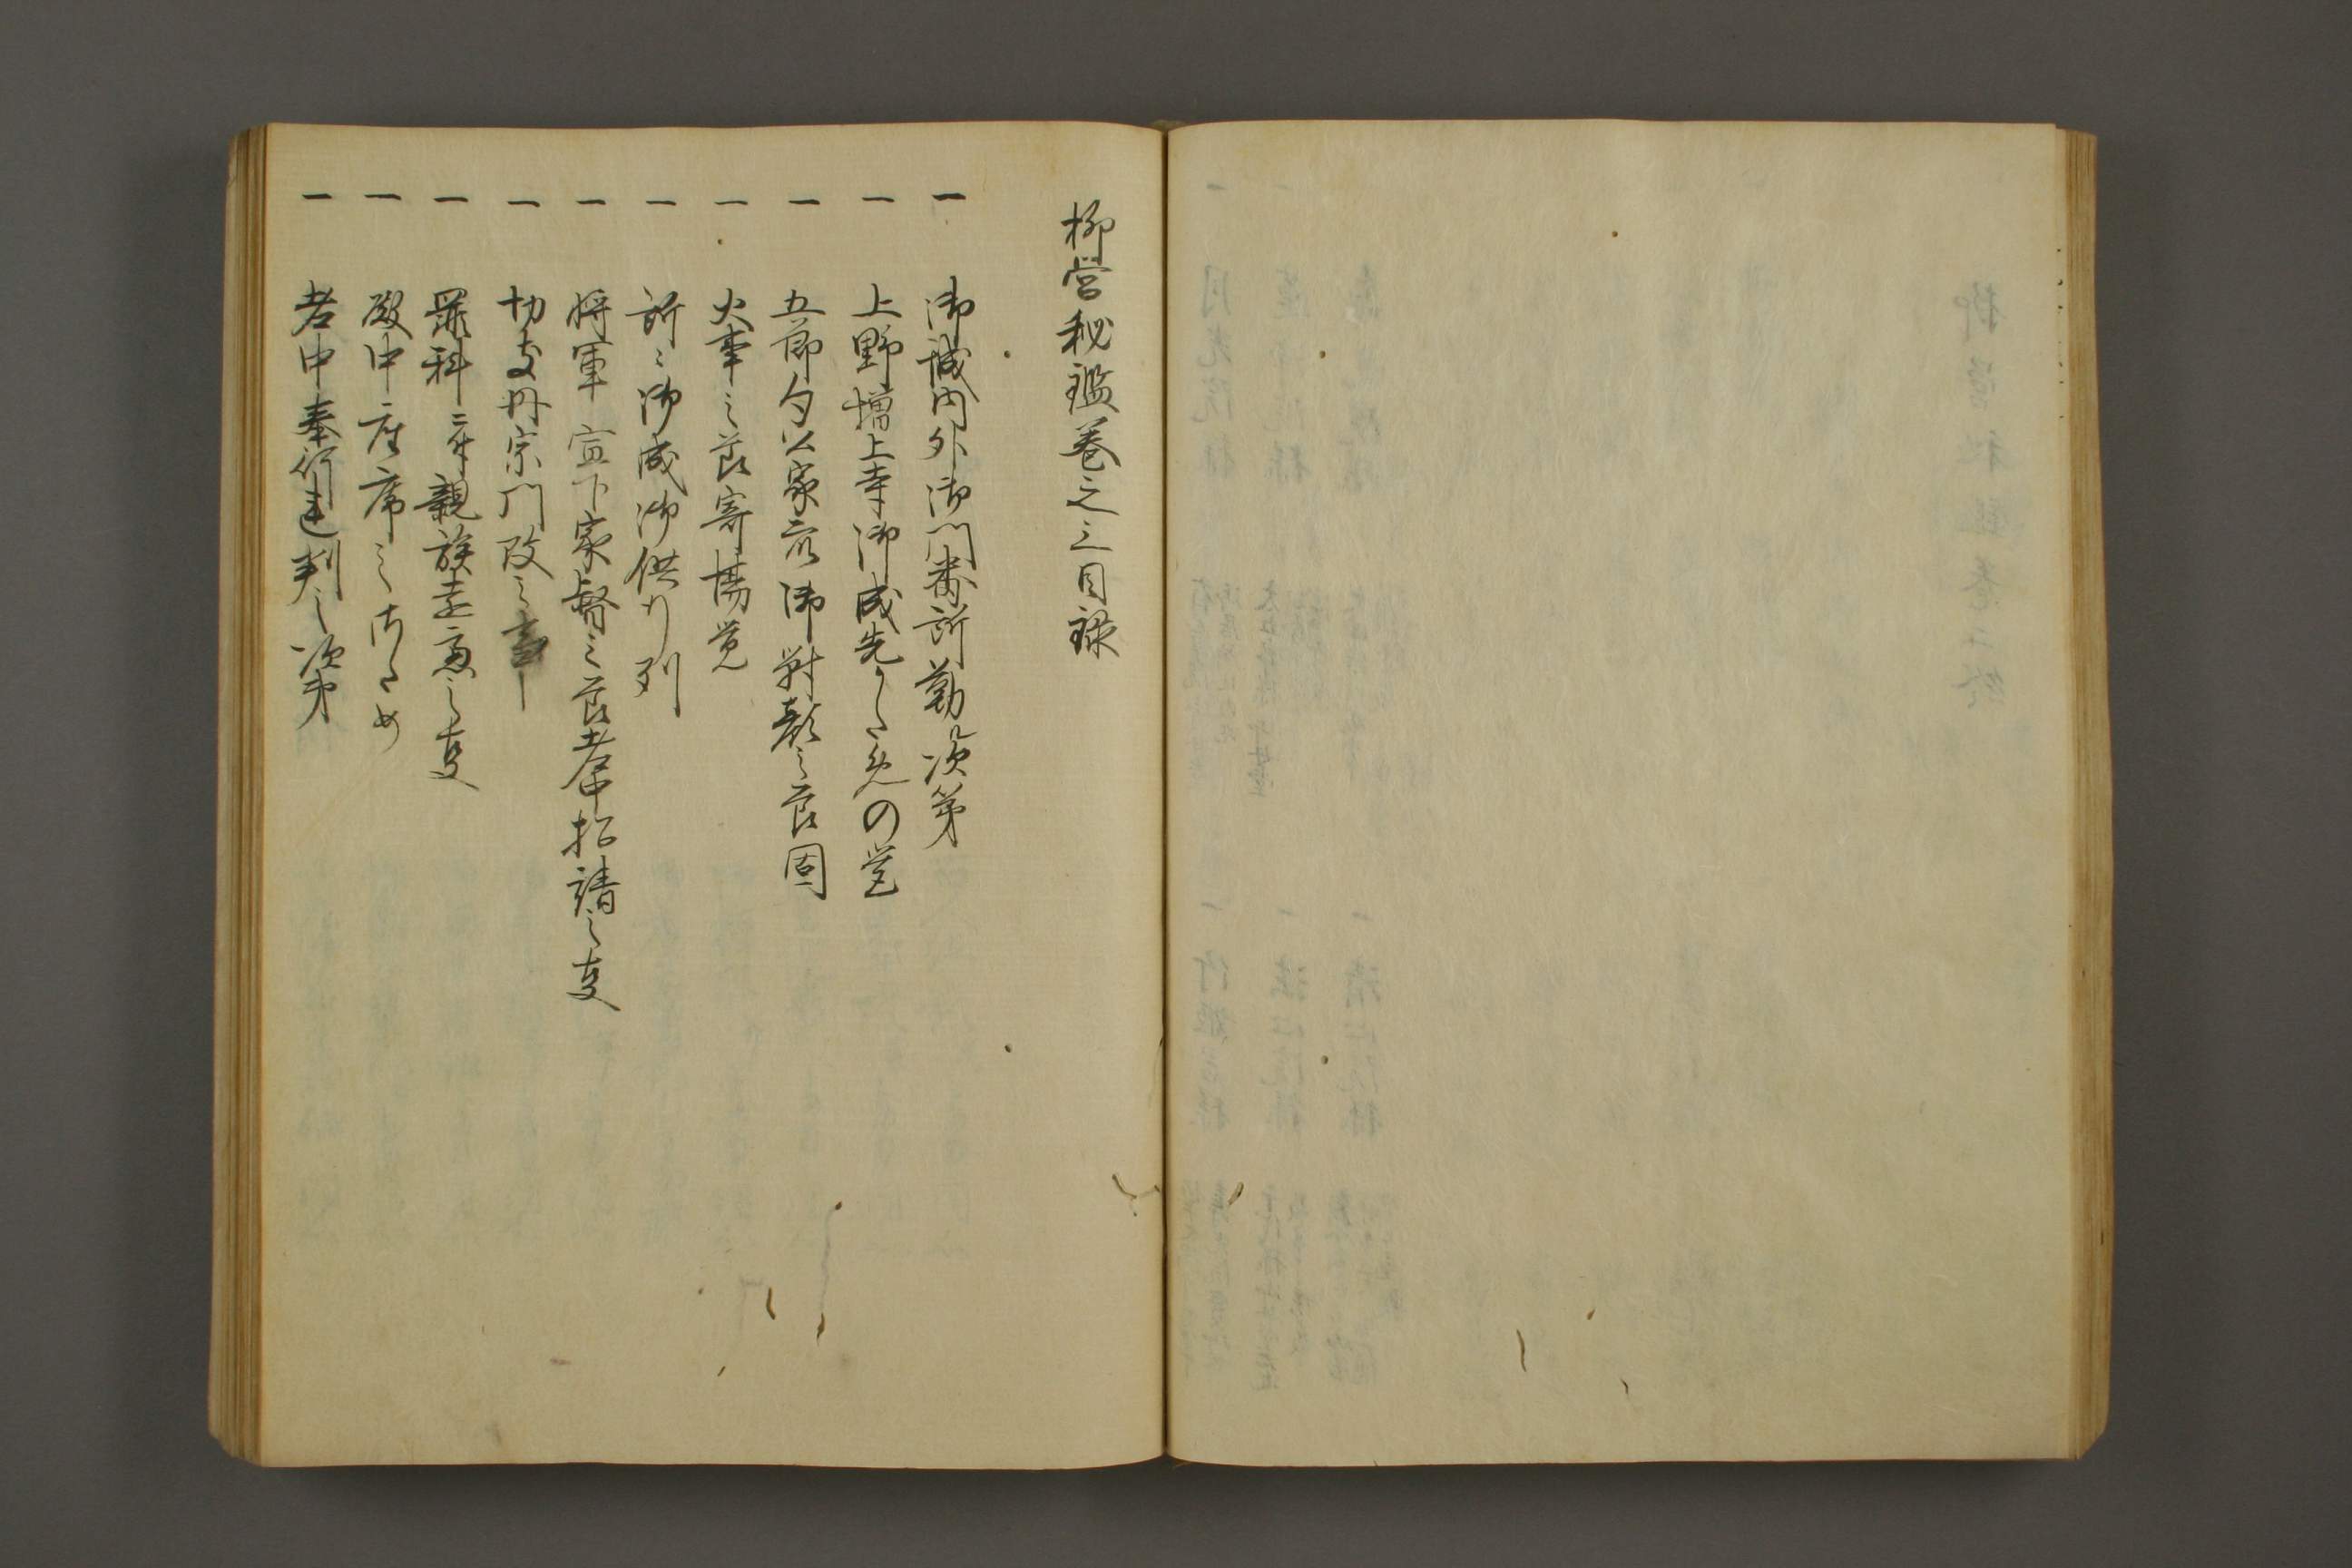 柳営秘鑑巻之三目録
一 御城内外御門番所勤次第
一 上野増上寺御成先かためめの覚
一 五節句公家衆御対顔之節固
一 火事之節寄場覚
一 所々御成御供行列
一 将軍宣下家督之節老中招請之事
一 切支丹宗門改之事
一 罪科之者親族遠慮之事
一 殿中座席之
一 老中奉行連判之次第